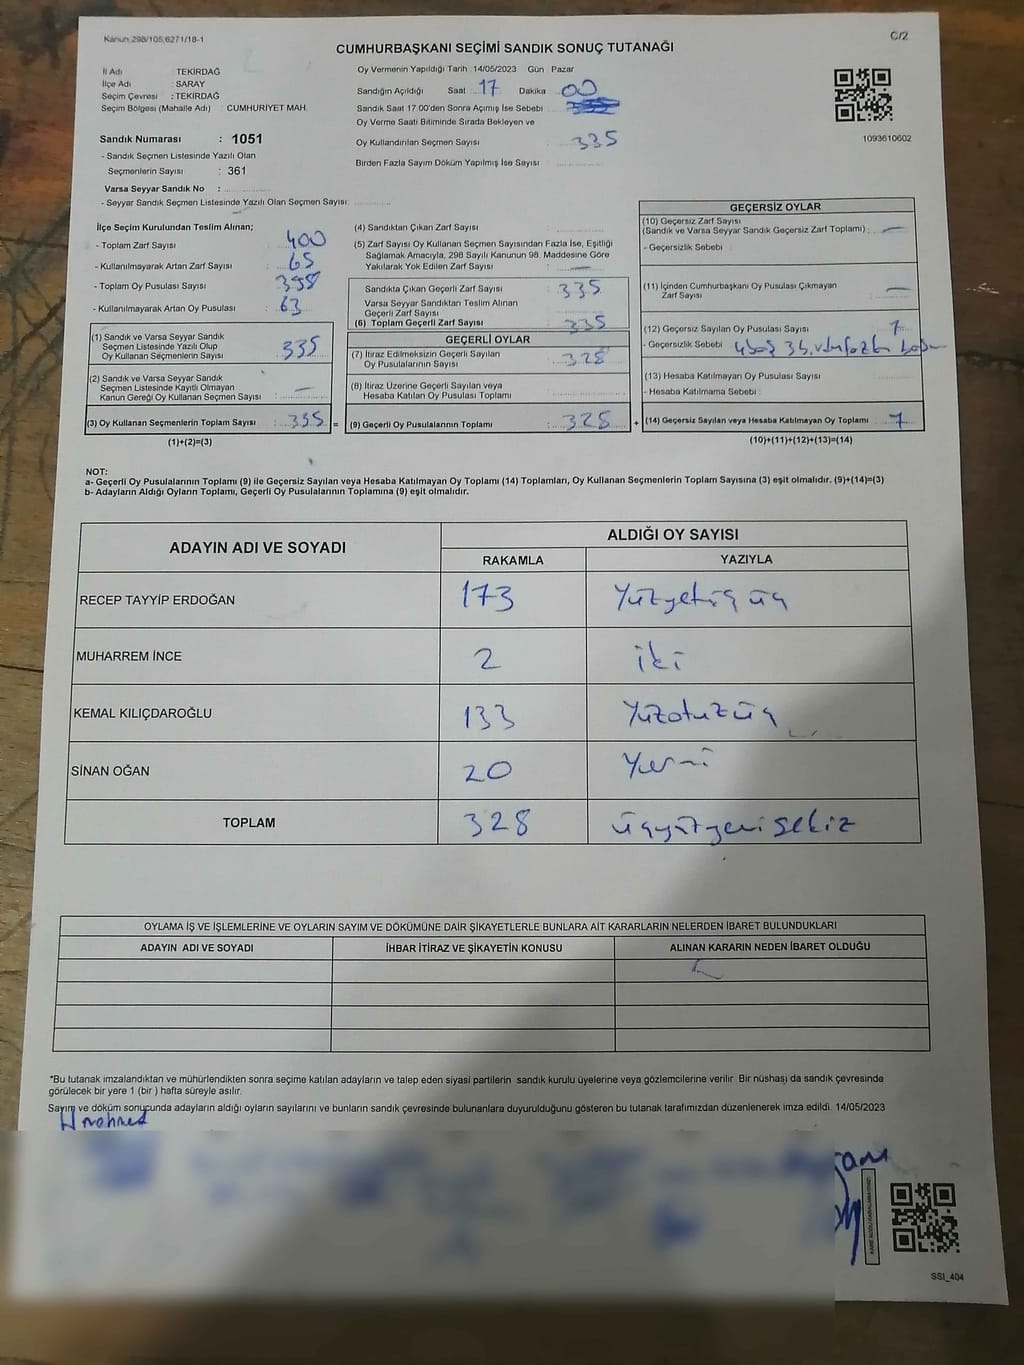 Kanun 298/105,6271/18-1
C/2
CUMHURBAŞKANI SEÇİMİ SANDIK SONUÇ TUTANAĞI
İl Adı : TEKİRDAĞ
İlçe Adı : SARAY
Seçim Çevresi : TEKİRDAĞ
Seçim Bölgesi (Mahalle Adı) : CUMHURİYET MAH.
Sandık Numarası : 1051
- Sandık Seçmen Listesinde Yazılı Olan
Seçmenlerin Sayısı : 361
Varsa Seyyar Sandık No :
- Seyyar Sandık Seçmen Listesinde Yazılı Olan Seçmen Sayısı:
Oy Vermenin Yapıldığı Tarih 14/05/2023 Gün Pazar
Sandığın Açıldığı Saat 17 Dakika 00
Sandık Saat 17 00'den Sonra Açımış İse Sebebi
Oy Verme Saati Bitiminde Sırada Bekleyen ve
Oy Kullandırılan Seçmen Sayısı 335
Birden Fazla Sayım Döküm Yapılmış İse Sayısı
1093610602
İlçe Seçim Kurulundan Teslim Alınan;
- Toplam Zarf Sayısı : 400
- Kullanılmayarak Artan Zarf Sayısı : 65
- Toplam Oy Pusulası Sayısı : 398
- Kullanılmayarak Artan Oy Pusulası : 63
(1) Sandık ve Varsa Seyyar Sandık
Seçmen Listesinde Yazılı Olup
Oy Kullanan Seçmenlerin Sayısı : 335
(2) Sandık ve Varsa Seyyar Sandık
Seçmen Listesinde Kayıtlı Olmayan
Kanun Gereği Oy Kullanan Seçmen Sayısı : —
(3) Oy Kullanan Seçmenlerin Toplam Sayısı : 335 =
(1)+(2)=(3)
(4) Sandıktan Çıkan Zarf Sayısı :
(5) Zarf Sayısı Oy Kullanan Seçmen Sayısından Fazla İse, Eşitliği
Sağlamak Amacıyla, 298 Sayılı Kanunun 98. Maddesine Göre
Yakılarak Yok Edilen Zarf Sayısı : —
Sandıkta Çıkan Geçerli Zarf Sayısı : 335
Varsa Seyyar Sandıktan Teslim Alınan
Geçerli Zarf Sayısı :
(6) Toplam Geçerli Zarf Sayısı : 335
GEÇERLİ OYLAR
(7) İtiraz Edilmeksizin Geçerli Sayılan
Oy Pusulalarının Sayısı : 328
(8) İtiraz Üzerine Geçerli Sayılan veya
Hesaba Katılan Oy Pusulası Toplamı :
(9) Geçerli Oy Pusulalarının Toplamı : 328 +
GEÇERSİZ OYLAR
(10) Geçersiz Zarf Sayısı
(Sandık ve Varsa Seyyar Sandık Geçersiz Zarf Toplamı) : —
- Geçersizlik Sebebi :
(11) İçinden Cumhurbaşkanı Oy Pusulası Çıkmayan
Zarf Sayısı : —
(12) Geçersiz Sayılan Oy Pusulası Sayısı 7
- Geçersizlik Sebebi
(13) Hesaba Katılmayan Oy Pusulası Sayısı :
- Hesaba Katılmama Sebebi :
(14) Geçersiz Sayılan veya Hesaba Katılmayan Oy Toplamı : 7
(10)+(11)+(12)+(13)=(14)
NOT:
a- Geçerli Oy Pusulalarının Toplamı (9) ile Geçersiz Sayılan veya Hesaba Katılmayan Oy Toplamı (14) Toplamları, Oy Kullanan Seçmenlerin Toplam Sayısına (3) eşit olmalıdır. (9)+(14)=(3)
b- Adayların Aldığı Oyların Toplamı, Geçerli Oy Pusulalarının Toplamına (9) eşit olmalıdır.
ADAYIN ADI VE SOYADI
ALDIĞI OY SAYISI
RAKAMLA YAZIYLA
RECEP TAYYİP ERDOĞAN 173 Yüzyetmişüç
MUHARREM İNCE 2 iki
KEMAL KILIÇDAROĞLU 133 Yüzotuzüç
SİNAN OĞAN 20 Yirmi
TOPLAM 328 üçyüzyirmisekiz
OYLAMA İŞ VE İŞLEMLERİNE VE OYLARIN SAYIM VE DÖKÜMÜNE DAİR ŞİKAYETLERLE BUNLARA AİT KARARLARIN NELERDEN İBARET BULUNDUKLARI
ADAYIN ADI VE SOYADI İHBAR İTİRAZ VE ŞİKAYETİN KONUSU ALINAN KARARIN NEDEN İBARET OLDUĞU
*Bu tutanak imzalandıktan ve mühürlendikten sonra seçime katılan adayların ve talep eden siyasi partilerin sandık kurulu üyelerine veya gözlemcilerine verilir. Bir nüshası da sandık çevresinde
görülecek bir yere 1 (bir ) hafta süreyle asılır.
Sayım ve döküm sonucunda adayların aldığı oyların sayılarını ve bunların sandık çevresinde bulunanlara duyurulduğunu gösteren bu tutanak tarafımızdan düzenlenerek imza edildi. 14/05/2023
SSI_404